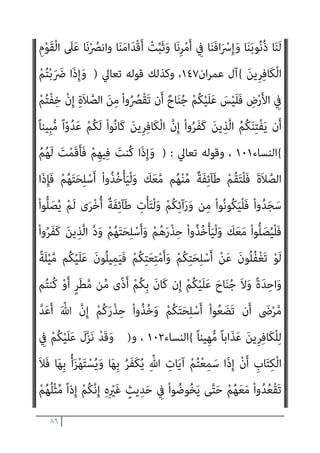 لَنَا ذُنُوبَنَا وَإِسْرَافَنَا فِي أَمْرِنَا وَثَبِّتْ أَقْدَامَنَا وانصُرْنَا عَلَى الْقَوْمِ
الْكَافِرِينَ {آل عمران١٤٧، وكذلك قوله تعالي ( وَإِذَا ضَرَبْتُمْ
فِي الأَرْضِ فَلَيْسَ عَلَيْكُمْ جُنَاحٌ أَن تَقْصُرُواْ مِنَ الصَّلاَةِ إِنْ خِفْتُمْ
أَن يَفْتِنَكُمُ الَّذِينَ كَفَرُواْ إِنَّ الْكَافِرِينَ كَانُواْ لَكُمْ عَدُوّاً مُّبِيناً
{النساء١٠١ ، وقوله تعالي : ( وَإِذَا كُنتَ فِيهِمْ فَأَقَمْتَ لَهُمُ
الصَّلاَةَ فَلْتَقُمْ طَآئِفَةٌ مِّنْهُم مَّعَكَ وَلْيَأْخُذُواْ أَسْلِحَتَهُمْ فَإِذَا
سَجَدُواْ فَلْيَكُونُواْ مِن وَرَآئِكُمْ وَلْتَأْتِ طَآئِفَةٌ أُخْرَى لَمْ يُصَلُّواْ
فَلْيُصَلُّواْ مَعَكَ وَلْيَأْخُذُواْ حِذْرَهُمْ وَأَسْلِحَتَهُمْ وَدَّ الَّذِينَ كَفَرُواْ
لَوْ تَغْفُلُونَ عَنْ أَسْلِحَتِكُمْ وَأَمْتِعَتِكُمْ فَيَمِيلُونَ عَلَيْكُم مَّيْلَةً
وَاحِدَةً وَلاَ جُنَاحَ عَلَيْكُمْ إِن كَانَ بِكُمْ أَذًى مِّن مَّطَرٍ أَوْ كُنتُم
مَّرْضَى أَن تَضَعُواْ أَسْلِحَتَكُمْ وَخُذُواْ حِذْرَكُمْ إِنَّ اللهَ أَعَدَّ
لِلْكَافِرِينَ عَذَاباً مُّهِيناً {النساء١٠٢ ، و( وَقَدْ نَزَّلَ عَلَيْكُمْ فِي
الْكِتَابِ أَنْ إِذَا سَمِعْتُمْ آيَاتِ اللهِ يُكَفَرُ بِهَا وَيُسْتَهْزَأُ بِهَا فَلاَ
تَقْعُدُواْ مَعَهُمْ حَتَّى يَخُوضُواْ فِي حَدِيثٍ غَيْرِهِ إِنَّكُمْ إِذاً مِّثْلُهُمْ
٨٦